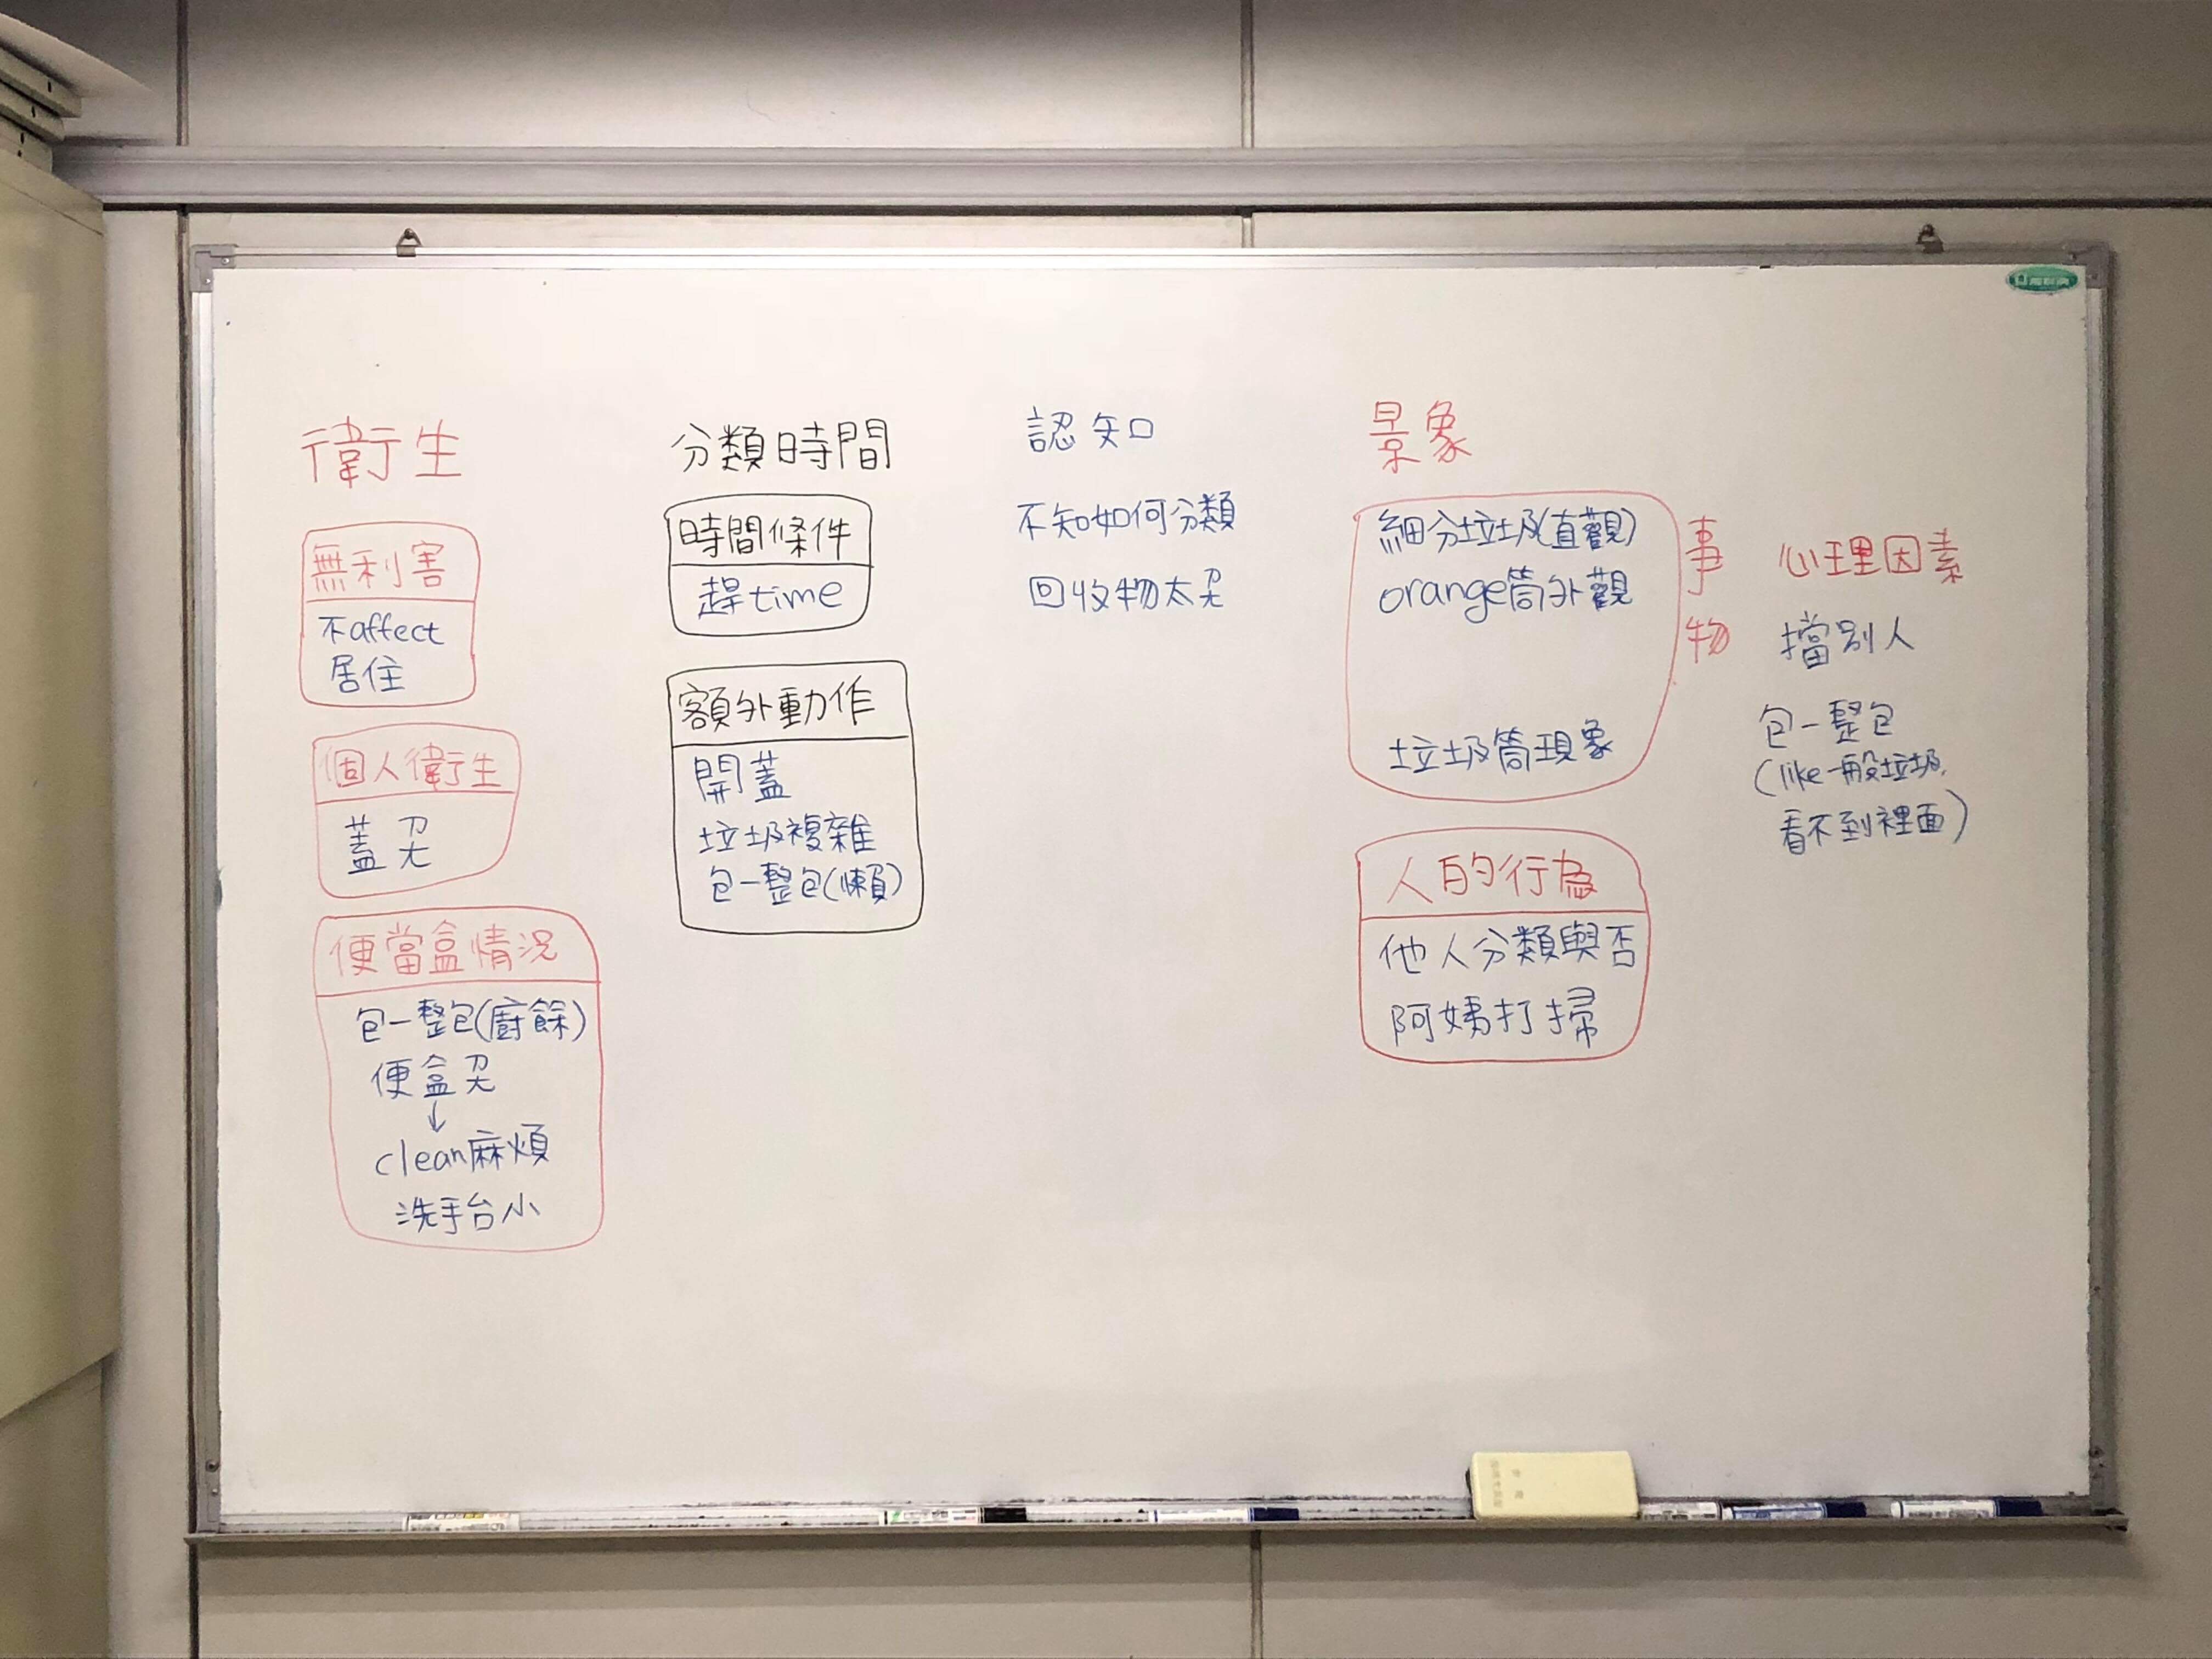 衛生
無利害
不affect
居住
個人衛生
蓋ㄗㄤ
便當盒情況
包一整包(廚餘)
便盒ㄗㄤ
↓
clean麻煩
洗手台小
分類時間
時間條件
趕time
額外動作
開蓋
垃圾複雜
包一整包(懶)
認知
不知如何分類
回收物太ㄗㄤ
景象
細分垃圾(直觀)
orange筒外觀
垃圾筒現象
事物
人的行為
他人分類與否
阿姨打掃
心理因素
擋別人
包一整包
(like一般垃圾,
看不到裡面)